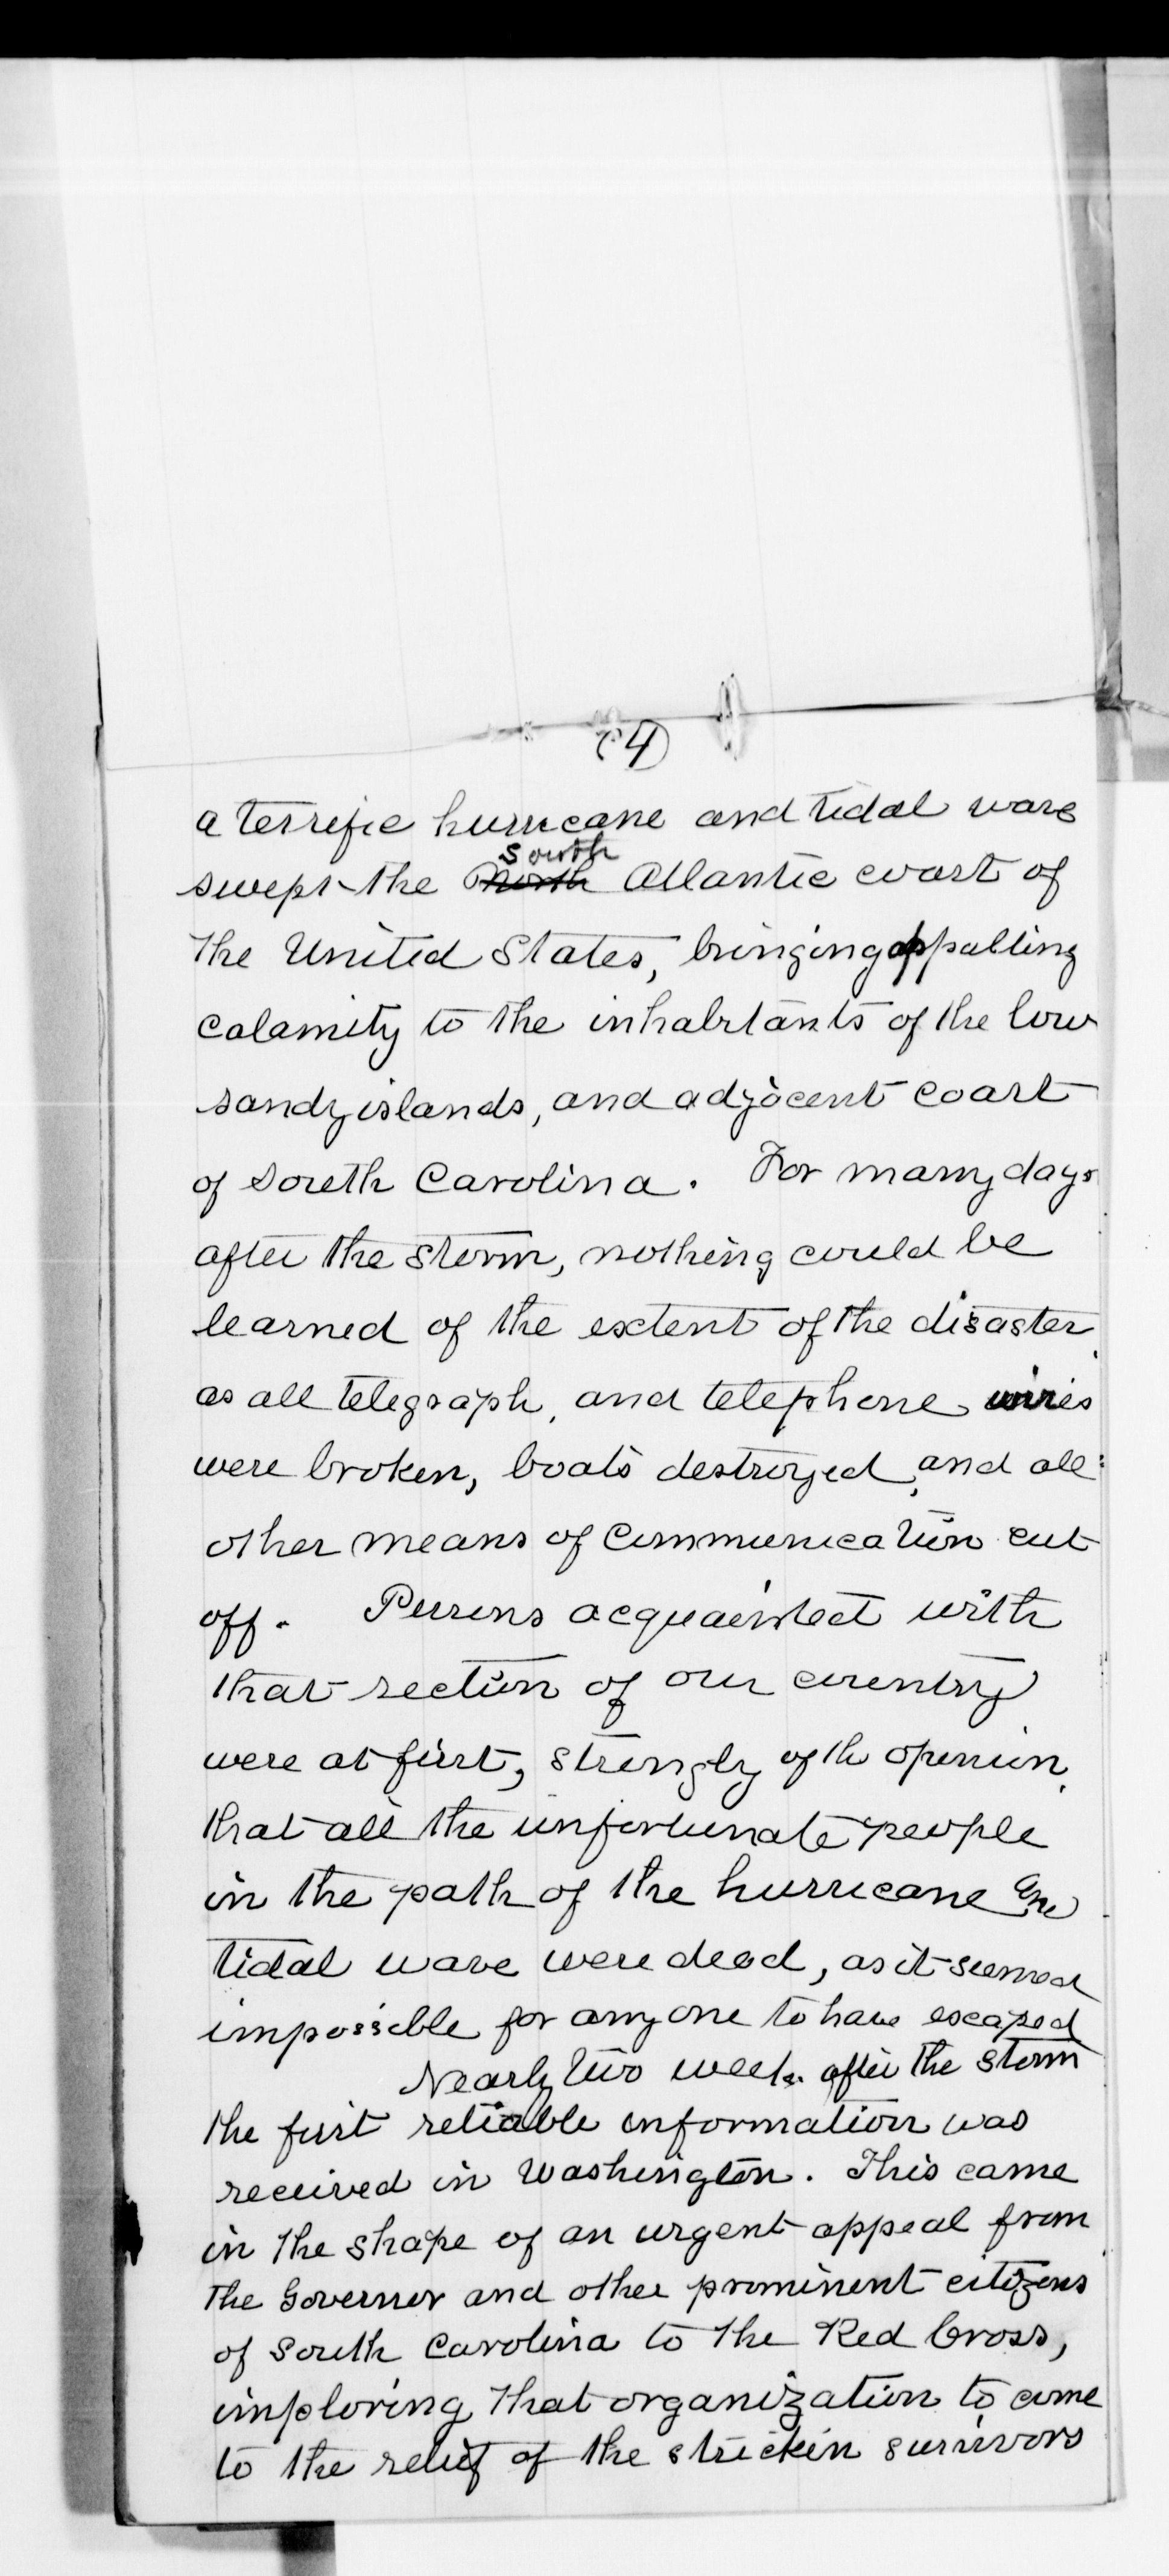 (4)
a terrific hurricane and tidal wave
South
swept the North Atlantic coast of
the United States, bringing appalling
calamity to the inhabitants of the low
sandy islands, and adjacent coast
of South Carolina. For many days
after the storm, nothing could be
learned of the extent of the disaster,
as all telegraph, and telephone wires
were broken, boats destroyed, and all
other means of communication cut
off. Persons acquainted with
that section of our country
were at first, strongly of th opinion,
that all the unfortunate people
in the path of the hurricane and
tidal wave were dead, as it seemed
impossible for any one to have escaped
Nearly two weeks after the storm
the first reliable information was
received in Washington. This came
in the shape of an urgent appeal from
the Governor and other prominent citizens
of South Carolina to the Red Cross,
imploring that organization to come
to the relief of the stricken survivors